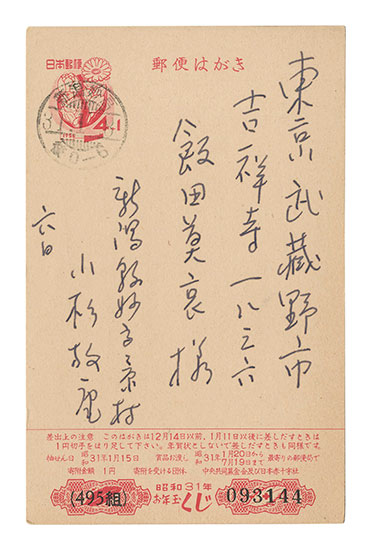 郵便はがき
日本郵便
4+1
1956
東京武蔵野市
吉祥寺一八三六
飯田莫哀様
新潟縣妙高高村
小杉放庵
六日
差出上の注意 このはがきは12月14日以前、1月11日以後に差しだすときは
1円切手をはり足して下さい。年賀状としないで差しだすときも同様です。
抽せん日 昭和31年1月15日 賞品お渡し 昭和31年1月20日から7月19日まで 最寄りの郵便局で
寄附金額 1円 寄附を受ける団体 中央共同募金会及び日本赤十字社
(495組)
昭和31年
お年玉くじ
093144